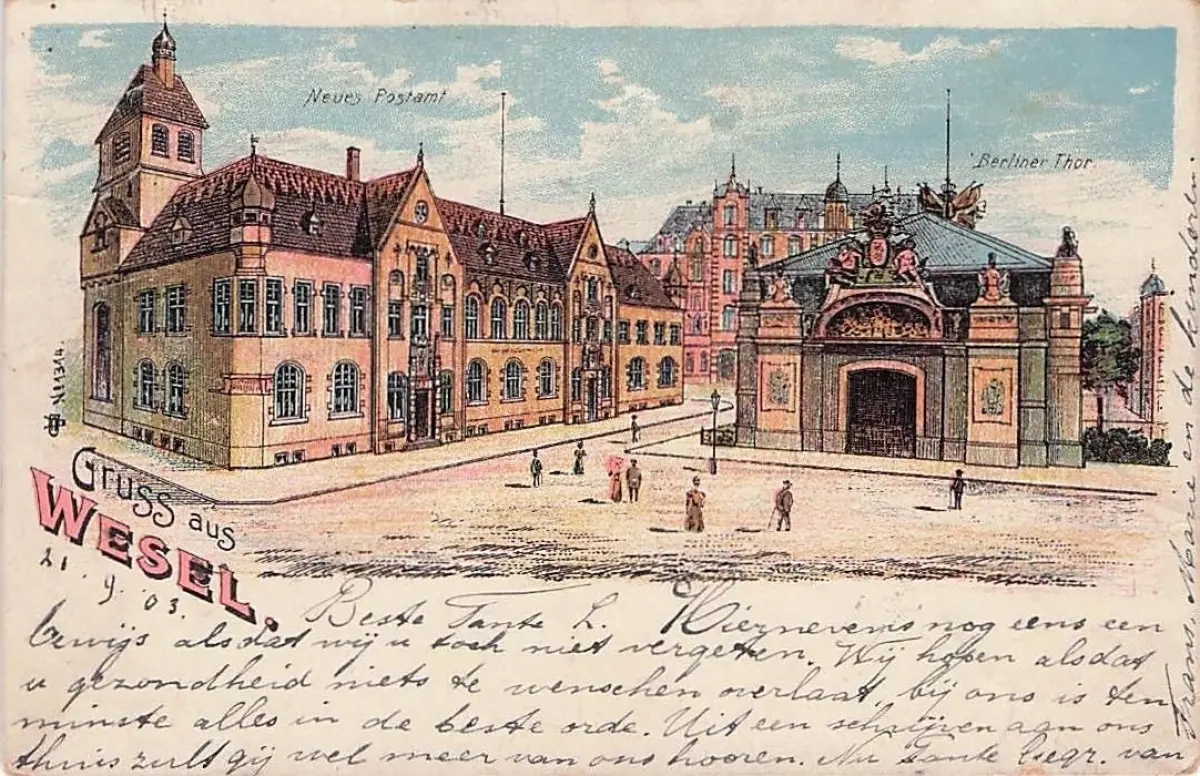 Neues Postamt
Berliner Thor.
No 1314.
Gruss aus
WESEL.
21. 9. 03.
Beste Tante L. Hiernevens nog eens een
bewijs alsdat wij u toch niet vergeten. Wij hopen alsdat
u gezondheid niets te wenschen overlaat, bij ons is ten
minste alles in de beste orde. Uit een schrijven aan ons
thuis zult gij wel meer van ons hooren. Nu Tante Gegr. van
Frans, Marie en de kinders.